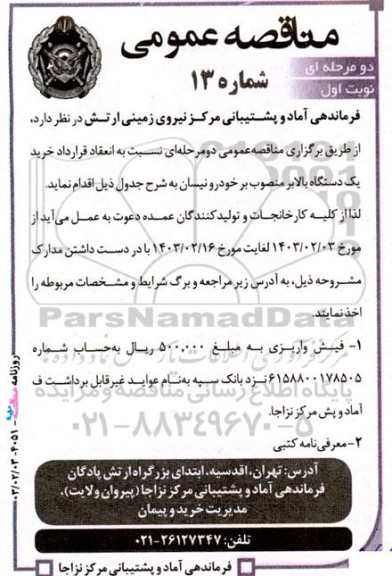 مناقصه عمومی
دو مرحله ای
نوبت اول
شماره ۱۳
فرماندهی آماد و پشتیبانی مرکز نیروی زمینی ارتش در نظر دارد،
از طریق برگزاری مناقصه عمومی دومرحله‌ای نسبت به انعقاد قرارداد خرید
یک دستگاه بالابر منصوب بر خودرو نیسان به شرح جدول ذیل اقدام نماید.
لذا از کلیه کارخانجات و تولیدکنندگان عمده دعوت به عمل می‌آید از
مورخ ۱۴۰۳/۰۲/۰۳ لغایت مورخ ۱۴۰۳/۰۲/۱۶ با در دست داشتن مدارک
مشروحه ذیل، به آدرس زیر مراجعه و برگ شرایط و مشخصات مربوطه را
اخذ نمایند.
ParsNamadData
۱- فیش واریزی به مبلغ ۵۰۰،۰۰۰ ریال به‌حساب شماره
۶۱۵۸۸۰۰۱۷۸۵۰۵ نزد بانک سپه به‌نام عواید غیرقابل برداشت ف
پایگاه اطلاع رسانی مناقصه و مزایده
آماد و پش مرکز نزاجا.
۰۲۱-۸۸۳۴۹۶۷۰-۵
۲- معرفی‌نامه کتبی
آدرس: تهران، اقدسیه، ابتدای بزرگراه ارتش پادگان
فرماندهی آماد و پشتیبانی مرکز نزاجا (پیروان ولایت)،
مدیریت خرید و پیمان
تلفن: ۲۶۱۲۷۳۴۷-۰۲۱
فرماندهی آماد و پشتیبانی مرکز نزاجا
روزنامه
۰۳/۰۲/۰۳-۴۰۵۱